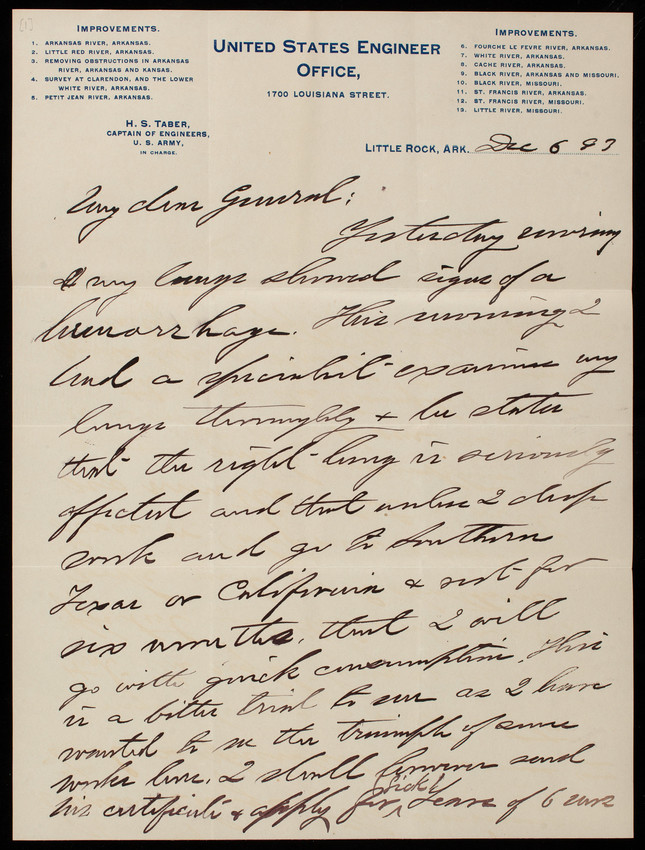 IMPROVEMENTS.
1. ARKANSAS RIVER, ARKANSAS.
2. LITTLE RED RIVER, ARKANSAS.
3. REMOVING OBSTRUCTIONS IN ARKANSAS
RIVER, ARKANSAS AND KANSAS.
4. SURVEY AT CLARENDON, AND THE LOWER
WHITE RIVER, ARKANSAS.
5. PETIT JEAN RIVER, ARKANSAS.
H. S. TABER,
CAPTAIN OF ENGINEERS,
U. S. ARMY,
IN CHARGE.
UNITED STATES ENGINEER
OFFICE,
1700 LOUISIANA STREET.
IMPROVEMENTS.
6. FOURCHE LE FEVRE RIVER, ARKANSAS.
7. WHITE RIVER, ARKANSAS.
8. CACHE RIVER, ARKANSAS.
9. BLACK RIVER, ARKANSAS AND MISSOURI.
10. BLACK RIVER, MISSOURI.
11. ST. FRANCIS RIVER, ARKANSAS.
12. ST. FRANCIS RIVER, MISSOURI.
13. LITTLE RIVER, MISSOURI.
LITTLE ROCK, ARK. Dec 6 93
My dear General:
Yesterday evening
my lungs showed signs of a
hemorrhage. This morning I
had a specialist examine my
lungs thoroughly + he states
that the right lung is seriously
affected and that unless I drop
work and go to Southern
Texas or California & rest for
six months, that I will
go with quick consumption. This
is a bitter trial to me as I have
wanted to see the triumph of some
works here. I shall however send
his certificate & apply for Sick Leave of 6 mos